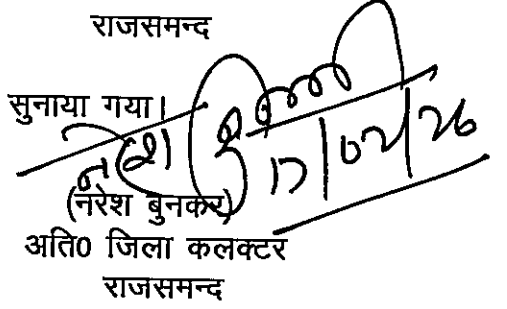 राजसमन्द
सुनाया गया।
17/02/26
(नरेश बुनकर)
अति0 जिला कलक्टर
राजसमन्द